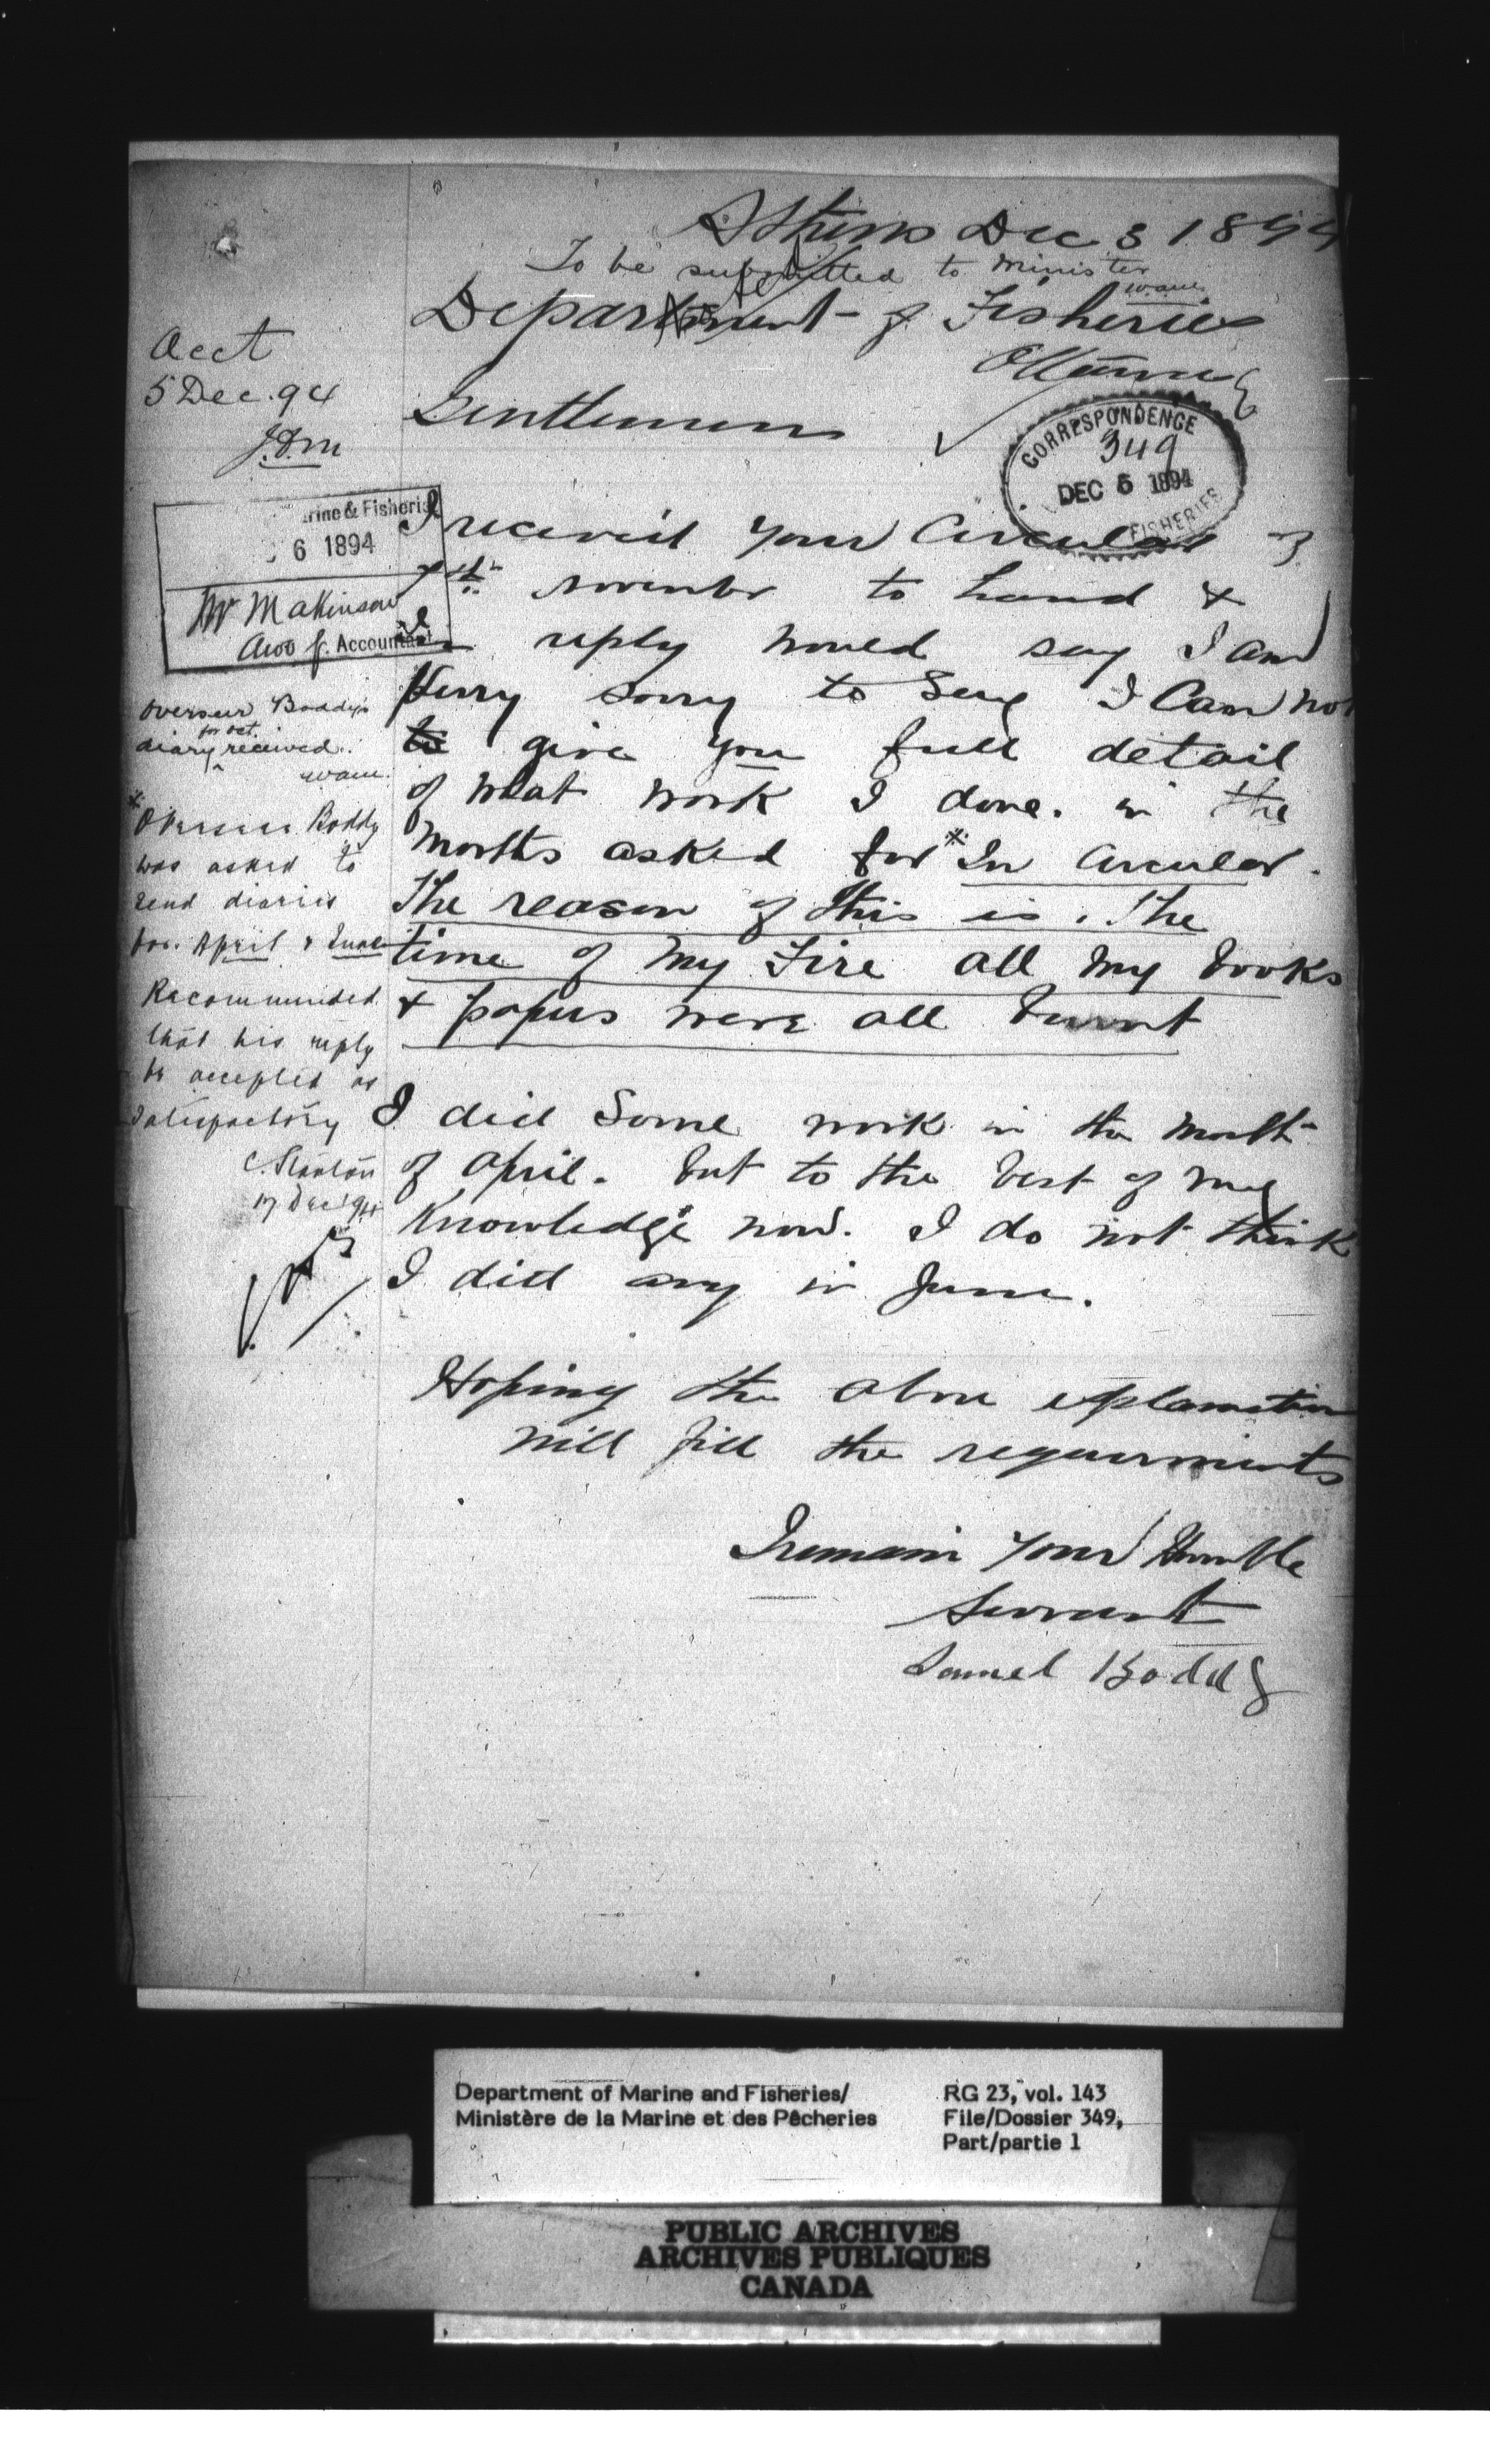 Athens Dec 3 1894
To be submitted to Minister
Department of Fisheries
Ottawa
Gentlemen
Acct
5 Dec. 94
CORRESPONDENCE
349
DEC 6 1894
FISHERIES
rine & Fisheries
6 1894
Mr Makinson
for Accountant
I receivd your Circular of
november to hand &
in reply would say I am
Verry sorry to Say I Can not
give you full detail
of what work I done. in the
months asked for * In Circular.
The reason of this is. The
time of my Fire all my books
& papers were all burnt
I did Some work in the month
of april. but to the best of my
Knowledge now. I do not think
I did any in June.
Hoping the above explanation
will fill the requirments
I remain your Humble
Servant
Samel Boddy
Overseer Boddy's
for Oct.
diary received.
* Overseer Boddy
was asked to
send diaries
for April & June
Recommended
that his reply
be accepted as
satisfactory
17 Dec 94
Department of Marine and Fisheries/
Ministère de la Marine et des Pêcheries
RG 23, vol. 143
File/Dossier 349,
Part/partie 1
PUBLIC ARCHIVES
ARCHIVES PUBLIQUES
CANADA